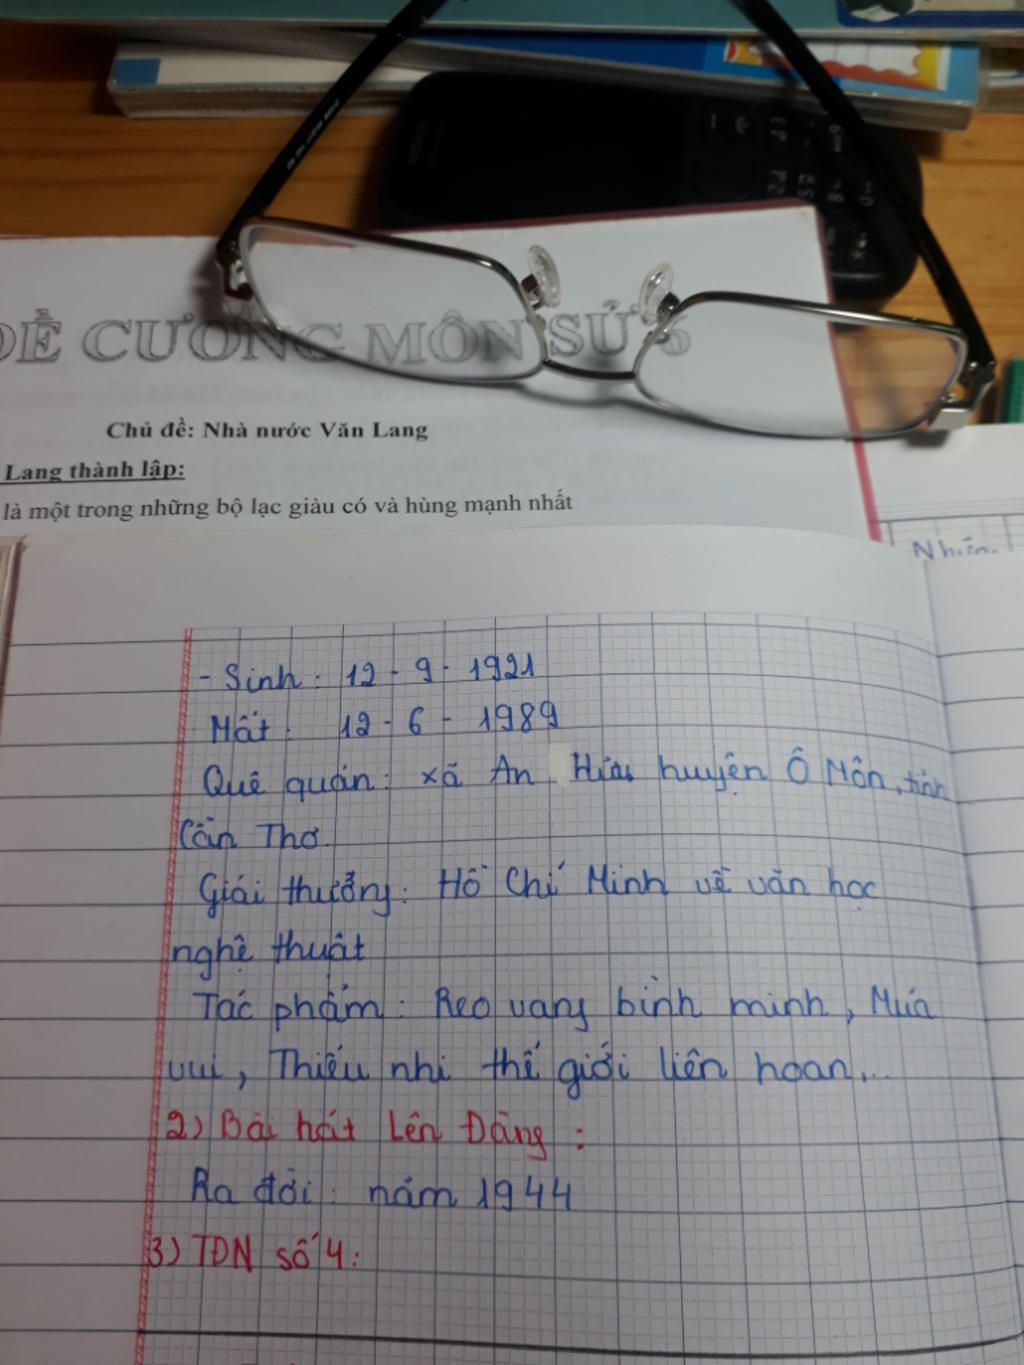 NOKIA
ĐỀ CƯƠNG MÔN SỬ 6
Chủ đề: Nhà nước Văn Lang
Lang thành lập:
là một trong những bộ lạc giàu có và hùng mạnh nhất
- Sinh: 12 - 9 - 1921
Mất: 12 - 6 - 1989
Quê quán: xã An huyện Ô Môn, tỉnh
Cần Thơ.
Giải thưởng: Hồ Chí Minh về văn học
nghệ thuật
Tác phẩm: Reo vang bình minh, Múa
vui, Thiếu nhi thế giới liên hoan,..
2) Bài hát Lên Đàng:
Ra đời: năm 1944
3) TĐN số 4: